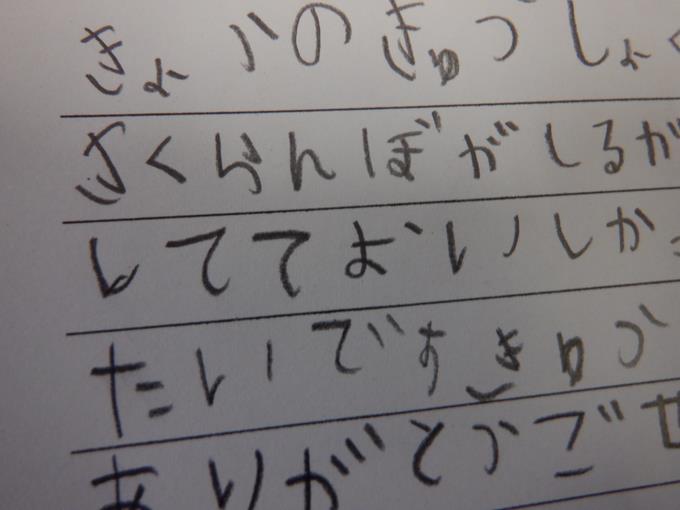 きょうのきゅうしょく
さくらんぼがしるが
してておいしか
たいですきゅう
ありがとうござ